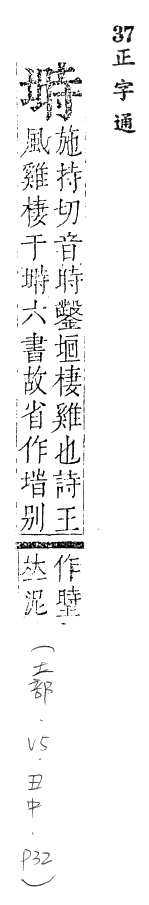 37 正字通
塒
施持切音時鑿垣棲雞也詩王
風雞棲于塒六書故省作别
作
泥
(土部．V5．丑中．P32)